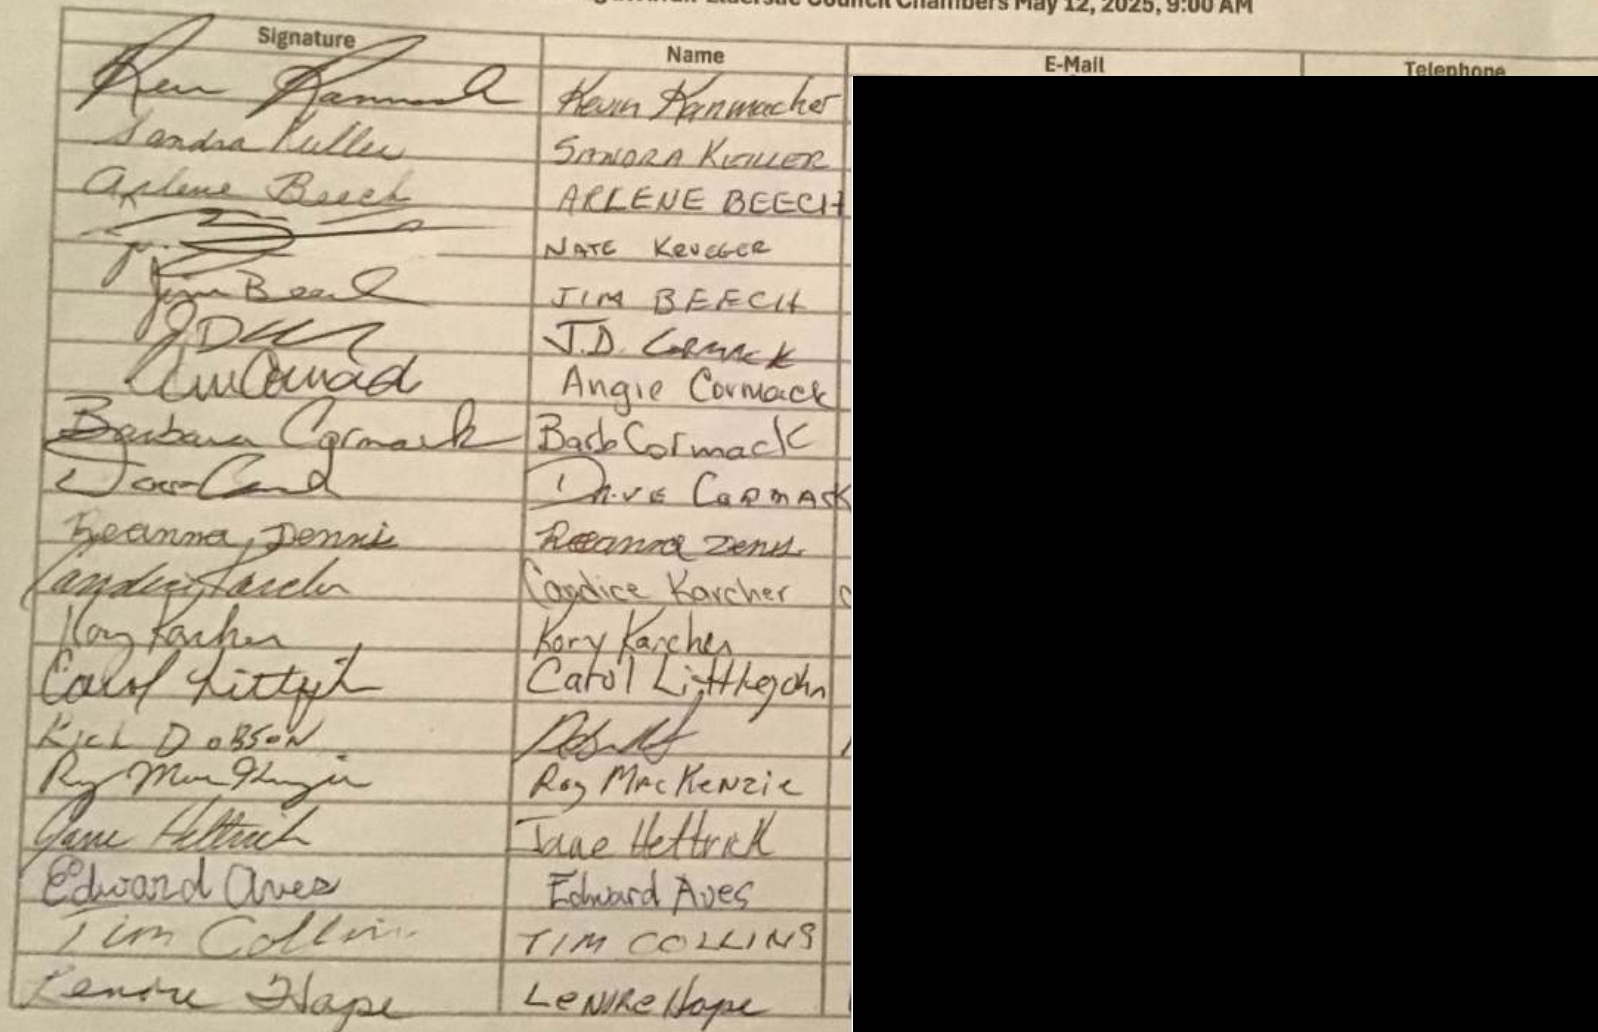 Elderslie Council Chambers May 12, 2025, 9:00 AM
Signature Name E-Mail Telephone
Kevin Kanmacher
Sandra SANDRA KELLER
Arlene Beech ARLENE BEECH
NATE KRUEGER
Jim Beech JIM BEECH
JD J.D. CORMACK
Angie Cormack
Barbara Cormack Barb Cormack
DAVE CORMACK
Dennis
Candice Karcher Candice Karcher
Kory Karcher Kory Karcher
Carol Carol Littlejohn
Rich DOBSON
Roy MacKenzie
Jane Hettrick Jane Hettrick
Edward Aves Edward Aves
Tim Collins TIM COLLINS
Lenore Hope LeNORe Hope